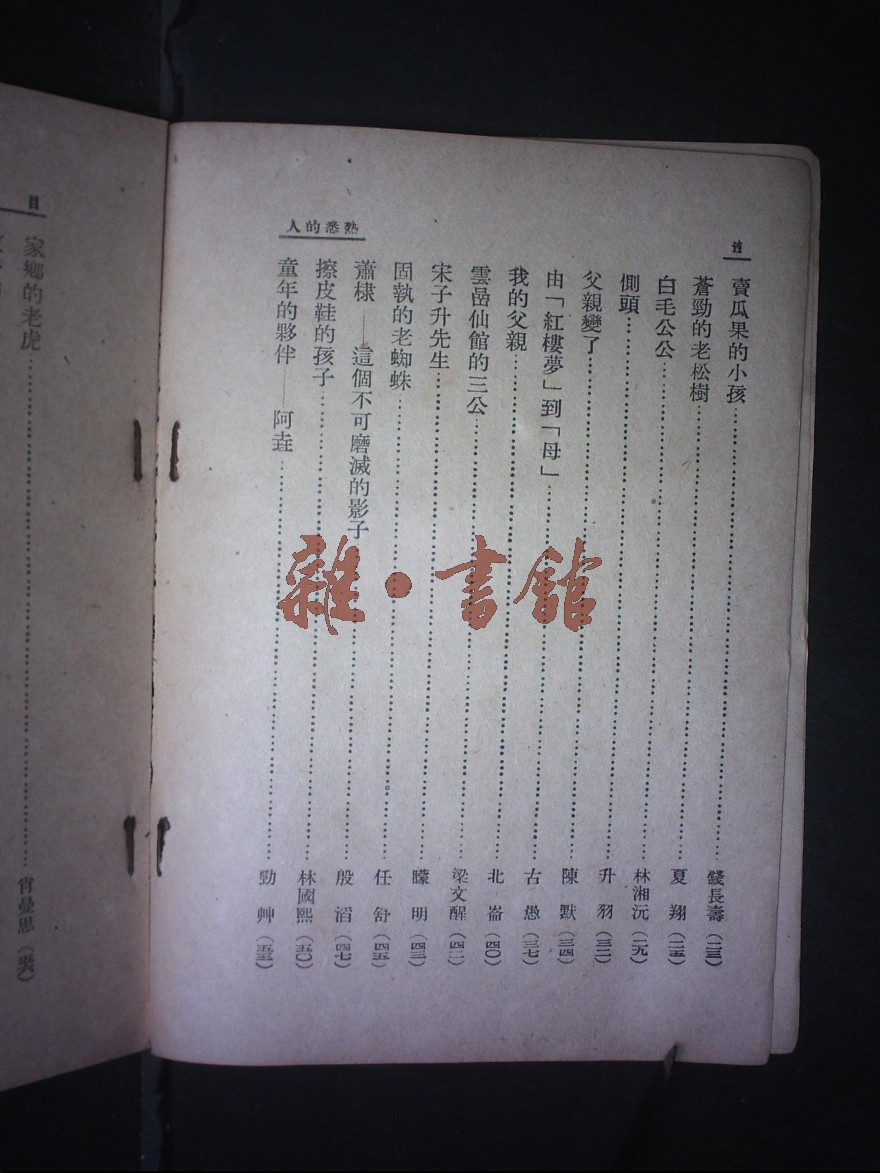 熟悉的人
賣瓜果的小孩……錢長壽(二三)
蒼勁的老松樹……夏翔(二五)
白毛公公……林湘沅(二九)
側頭……升羽(三二)
父親變了……陳默(三四)
由「紅樓夢」到「母」……古愚(三七)
我的父親……北崙(四〇)
雲嵒仙館的三公……梁文醒(四二)
宋子升先生……矇明(四三)
固執的老蜘蛛……任舒(四五)
蕭棣——這個不可磨滅的影子……殷滔(四七)
擦皮鞋的孩子……林國熙(五〇)
童年的夥伴——阿垚……勁艸(五三)
目
家鄉的老虎……曼思
雜·書館